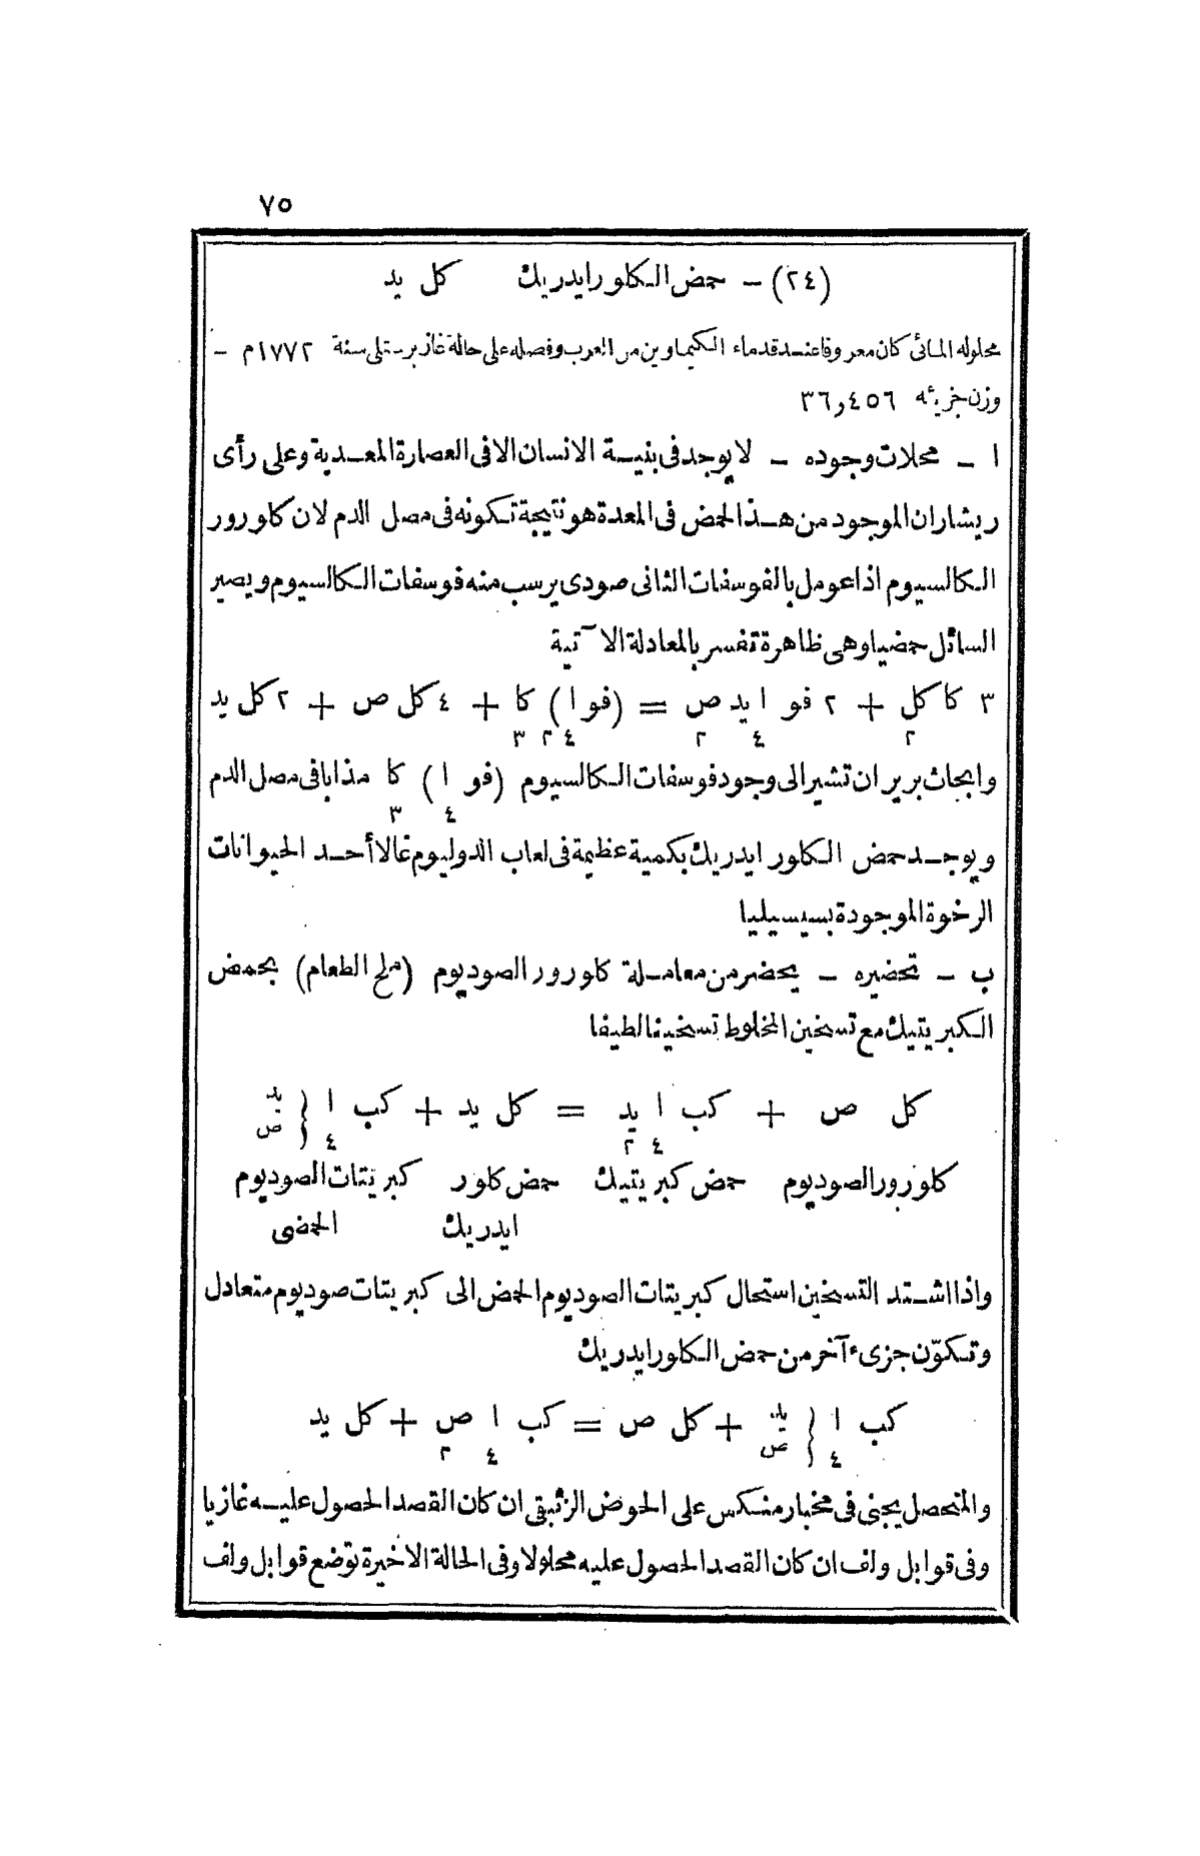 ٧٥
(٢٤) – حمض الكلورايدريك كل يد
محلوله المائى كان معروفا عند قدماء الكيماوين من العرب وفصله على حالة غاز برستلى سنة ١٧٧٢م –
وزن جزيئه ٣٦٫٤٥٦
ا – محلات وجوده – لا يوجد فى بنية الانسان الا فى العصارة المعدية وعلى رأى
ريشار ان الموجود من هذا الحمض فى المعدة هو نتيجة تكونه فى مصل الدم لان كلورور
الكالسيوم اذا عومل بالفوسفات الثانى صودى يرسب منه فوسفات الكالسيوم ويصير
السائل حمضيا وهى ظاهرة تفسر بالمعادلة الآتية
٣ كا كل٢ + ٢ فو ا٤ يد ص٢ = (فو ا٤)٢ كا٣ + ٤ كل ص + ٢ كل يد
وابحاث بريران تشير الى وجود فوسفات الكالسيوم (فو ا٤) كا٣ مذابا فى مصل الدم
ويوجد حمض الكلورايدريك بكمية عظيمة فى لعاب الدوليوم غالا أحد الحيوانات
الرخوة الموجودة بسيسيليا
ب – تحضيره – يحضر من معاملة كلورور الصوديوم (ملح الطعام) بحمض
الكبريتيك مع تسخين المخلوط تسخينا لطيفا
كل ص + كب ا٤ يد٢ = كل يد + كب ا٤ { يد ص
كلورور الصوديوم حمض كبريتيك حمض كلور كبريتات الصوديوم
ايدريك الحمضى
واذا اشتد التسخين استحال كبريتات الصوديوم الحمض الى كبريتات صوديوم متعادل
وتكوّن جزىء آخر من حمض الكلورايدريك
كب ا٤ { يد ص + كل ص = كب ا٤ ص٢ + كل يد
والمتحصل يجنى فى مخبار منكس على الحوض الزئبقى ان كان القصد الحصول عليه غازيا
وفى قوابل ولف ان كان القصد الحصول عليه محلولا وفى الحالة الاخيرة توضع قوابل ولف